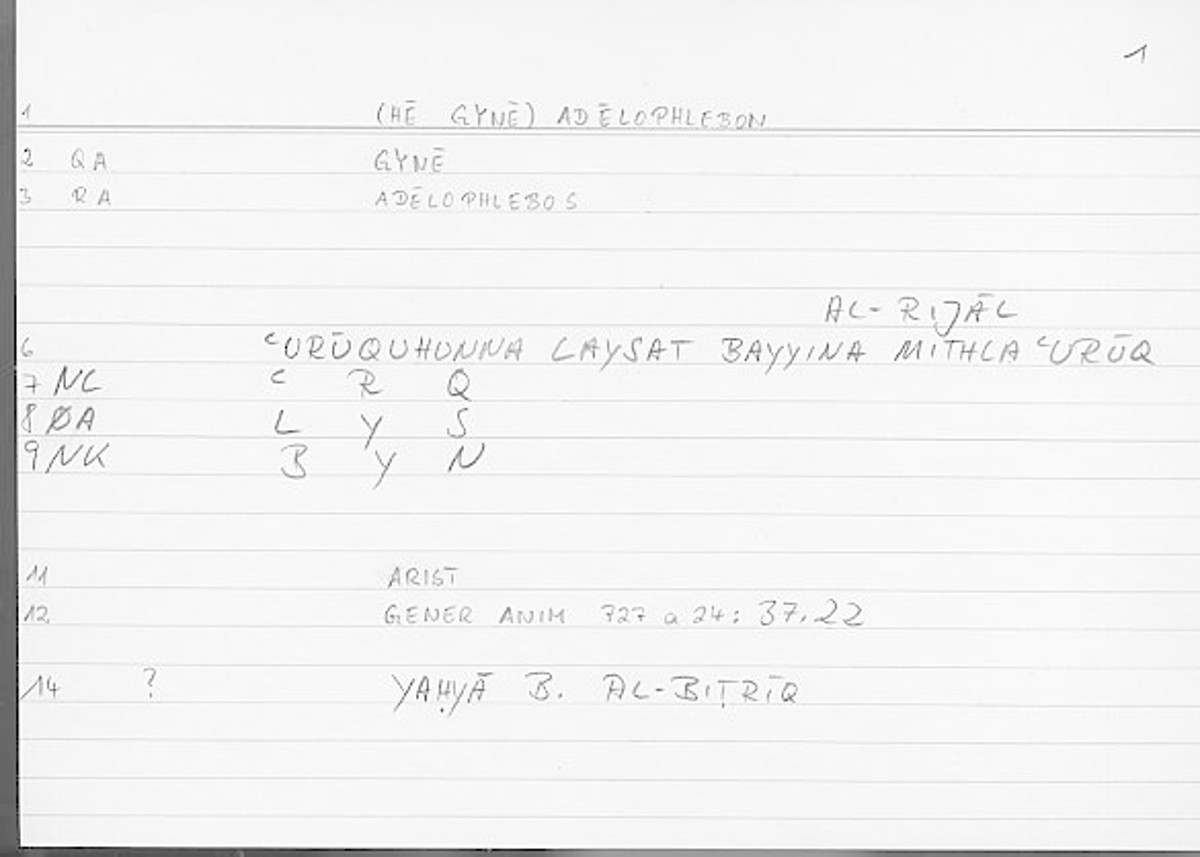 1
1 (HĒ GYNĒ) ADĒLOPHLEBON
2 QA GYNĒ
3 RA ADĒLOPHLEBOS
AL-RIJĀL
6 ʿURŪQUHUNNA LAYSAT BAYYINA MITHLA ʿURŪQ
7 NL ʿ R Q
8 ØA L Y S
9 NK B Y N
11 ARIST
12 GENER ANIM 727 a 24: 37,22
14 ? YAḤYĀ B. AL-BIṬRĪQ